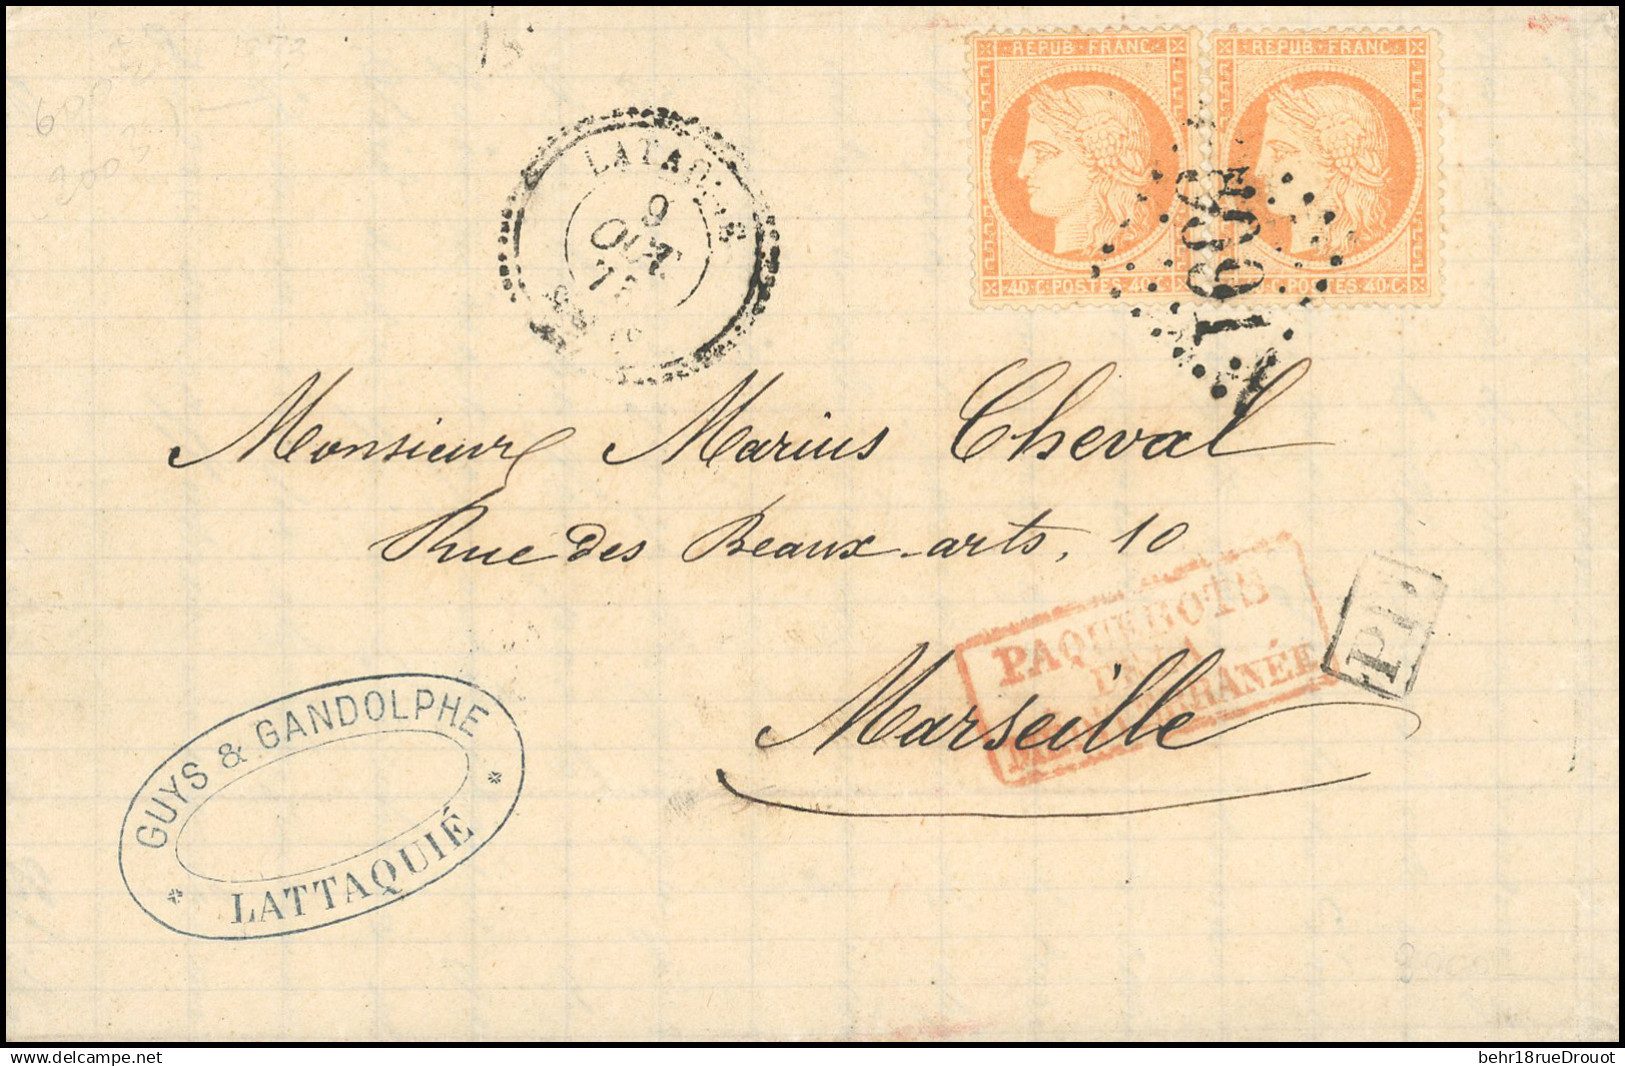 REPUB·FRANC·
REPUB·FRANC·
40·C·POSTES·40·C·
C·POSTES·40·C·
LATAQUIE
9
OCT
Monsieur Marius Cheval
Rue des Beaux-arts, 10
Marseille
PAQUEBOTS
DE LA
PP
GUYS & GANDOLPHE
* LATTAQUIÉ *
delcampe.net
behr18rueDrouot